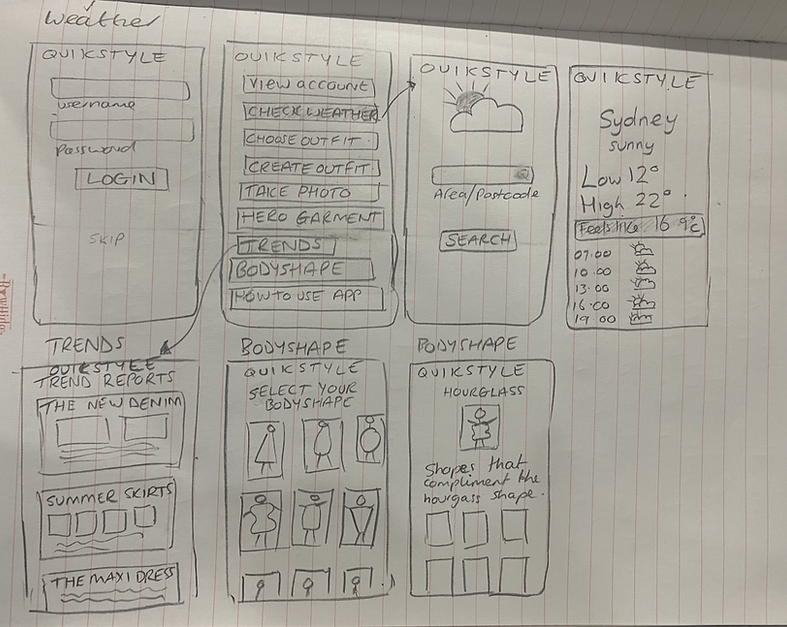 Weather
QUIKSTYLE
username
Password
LOGIN
SKIP
QUIKSTYLE
VIEW ACCOUNT
CHECK WEATHER
CHOOSE OUTFIT
CREATE OUTFIT
TAKE PHOTO
HERO GARMENT
TRENDS
BODYSHAPE
HOW TO USE APP
QUIKSTYLE
Area/Postcode
SEARCH
QUIKSTYLE
Sydney
sunny
Low 12°
High 22°
Feels like 16.9°C
07.00
10.00
13.00
16.00
19.00
TRENDS
QUIKSTYLE
TREND REPORTS
THE NEW DENIM
SUMMER SKIRTS
THE MAXI DRESS
BODYSHAPE
QUIKSTYLE
SELECT YOUR
BODYSHAPE
BODYSHAPE
QUIKSTYLE
HOURGLASS
Shapes that
compliment the
hourgass shape.